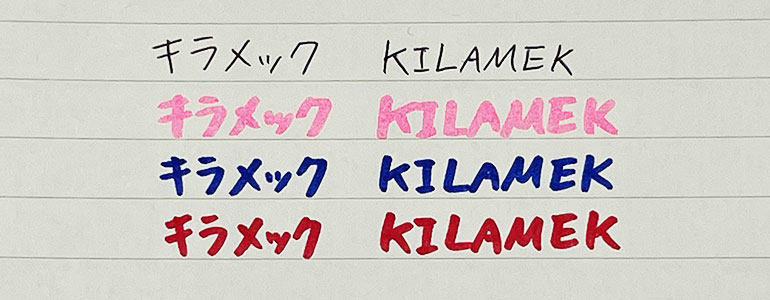 キラメック KILAMEK
キラメック KILAMEK
キラメック KILAMEK
キラメック KILAMEK